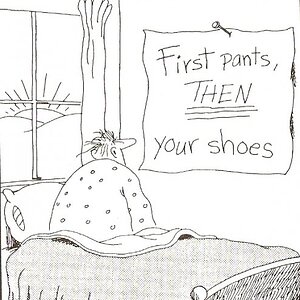 First pants,
THEN
your shoes